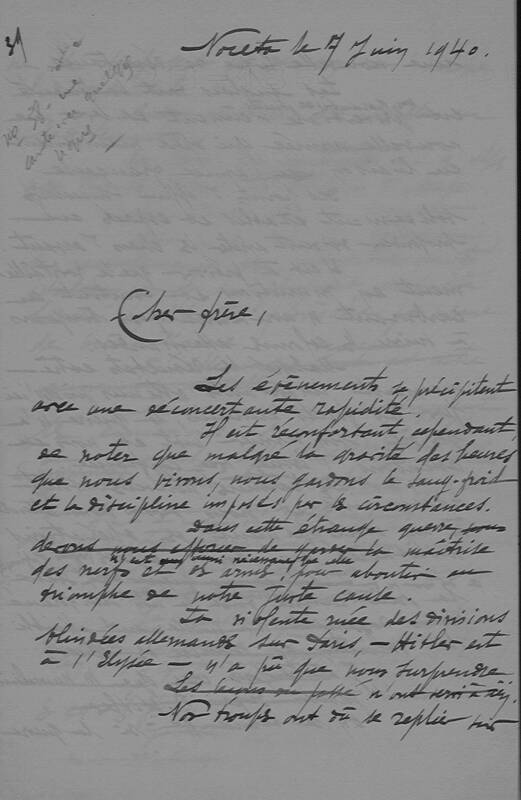 Noceta le 7 Juin 1940.
Cher frère,
Les évènements se précipitent
avec une déconcertante rapidité.
Il est réconfortant cependant,
de noter que malgré la gravité des heures
que nous vivons, nous gardons le sang-froid
et la discipline imposés par les circonstances.
Dans cette étrange guerre, nous
devons nous efforcer de garder la maîtrise
des nerfs et des armes, pour aboutir au
triomphe de notre Juste cause.
La violente ruée des divisions
blindées allemandes sur Paris, — Hitler est
à l'Elysée — n'a pu que nous surprendre
Les leçons du passé n'ont servi à
Nos troupes ont dû se replier sur